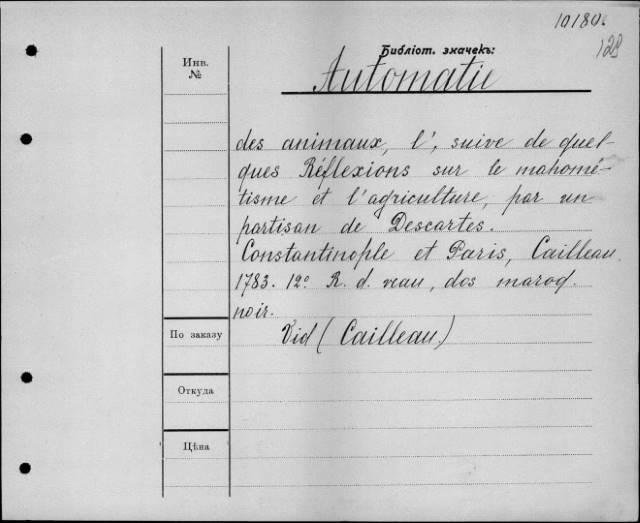 10180.
128
Библіот. значекъ:
Инв.
№
Automatie
des animaux, l', suive de quel-
ques Réflexions sur le mahomé-
tisme et l'agriculture, par un
partisan de Descartes.
Constantinople et Paris, Cailleau.
1783. 12º R. d. veau, dos maroq.
noir.
Vid (Cailleau.)
По заказу
Откуда
Цѣна